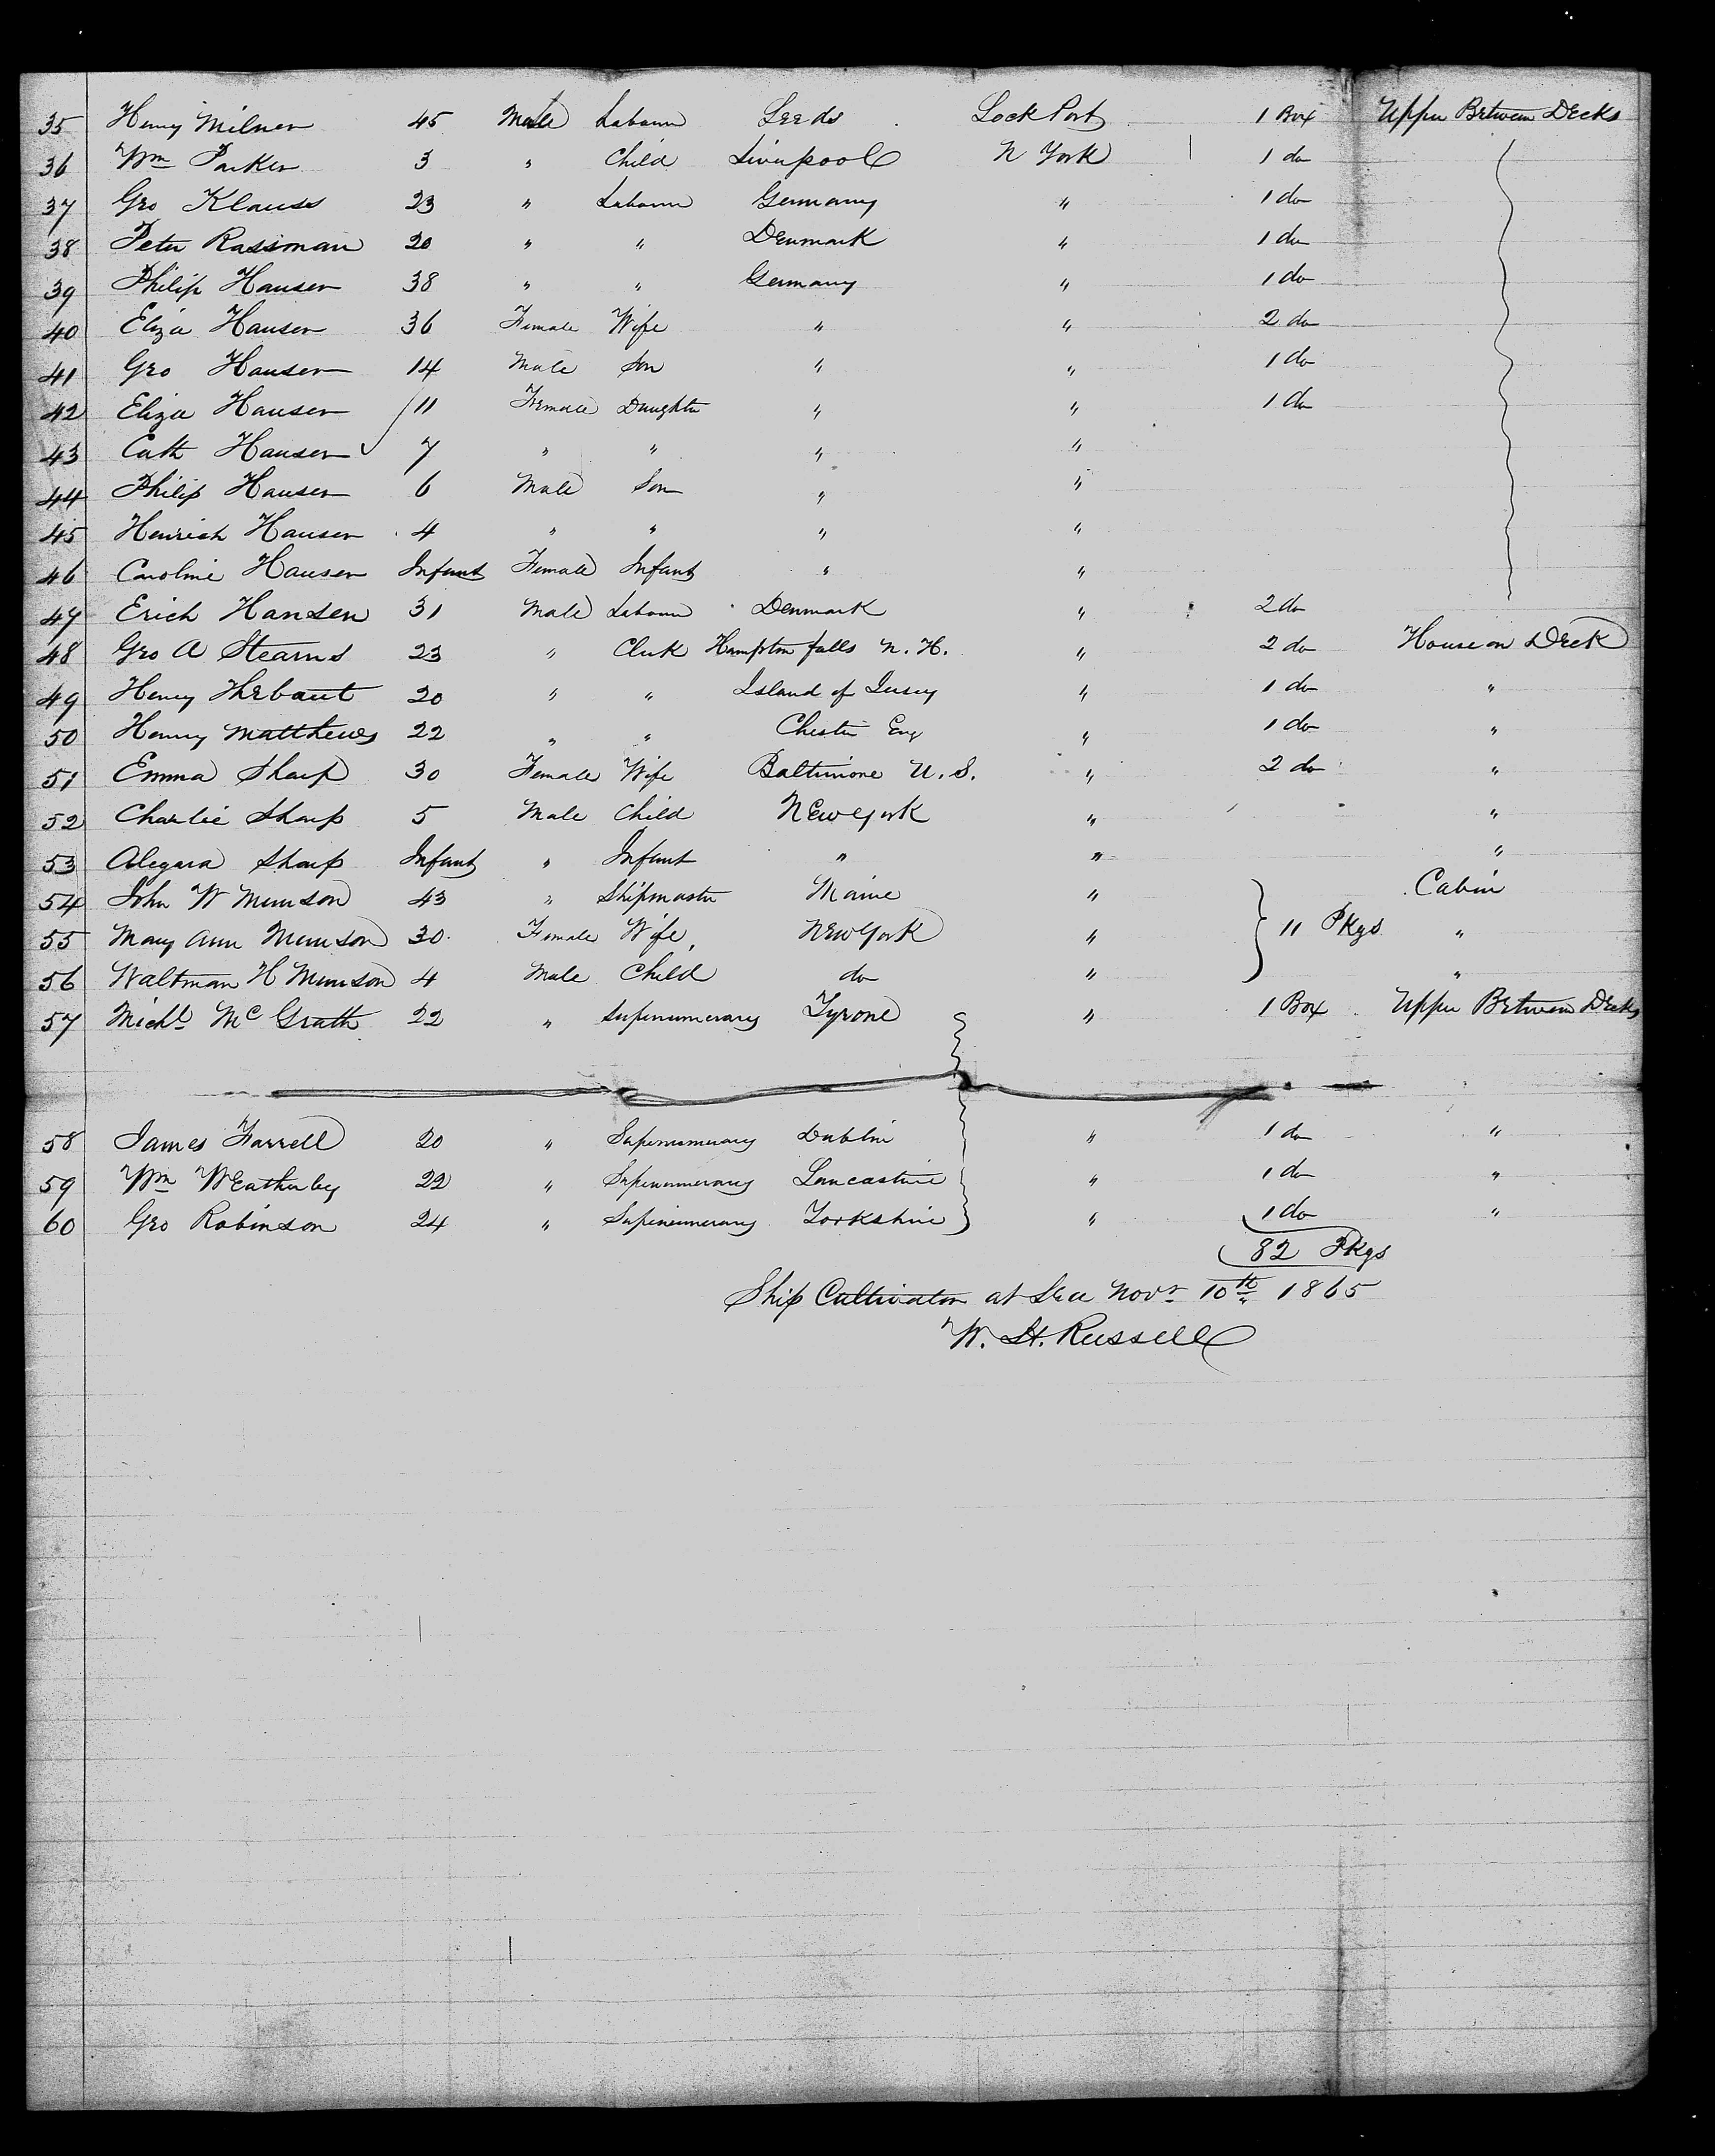 35 Henry Milner 45 Male Labourer Leeds Lock Port 1 Box Upper Between Decks
36 Wm Parker 3 " Child Liverpool N York 1 do
37 Geo Klauss 23 " Labourer Germany " 1 do
38 Peter Rassman 20 " " Denmark " 1 do
39 Philip Hauser 38 " " Germany " 1 do
40 Eliza Hauser 36 Female Wife " " 2 do
41 Geo Hauser 14 Male Son " " 1 do
42 Eliza Hauser 11 Female Daughter " " 1 do
43 Cath Hauser 7 " " " "
44 Philip Hauser 6 Male Son " "
45 Henrich Hauser 4 " " " "
46 Caroline Hauser Infant Female Infant " "
47 Erich Hansen 31 Male Labourer Denmark " 2 do
48 Geo A Stearns 23 " Clerk Hampton falls N. H. " 2 do House on Deck
49 Henry Thebaut 20 " " Island of Jersey " 1 do "
50 Henry Matthews 22 " " Chester Eng " 1 do "
51 Emma Sharp 30 Female Wife Baltimore U. S. " 2 do "
52 Charlie Sharp 5 Male Child New York " "
53 Sharp Infant " Infant " " "
54 John W Munson 43 " Shipmaster Maine " Cabin
55 Mary Ann Munson 30 Female Wife New York " 11 Pkgs "
56 Waltman H Munson 4 Male Child do " "
57 Michl McGrath 22 " Supernumerary Tyrone " 1 Box Upper Between Decks
58 James Farrell 20 " Supernumerary Dublin " 1 do "
59 Wm Weatherley 22 " Supernumerary Lancastire " 1 do "
60 Geo Robinson 24 " Supernumerary Yorkshire " 1 do "
82 Pkgs
Ship Cultivator at Sea Novr 10th 1865
W. H. Russell